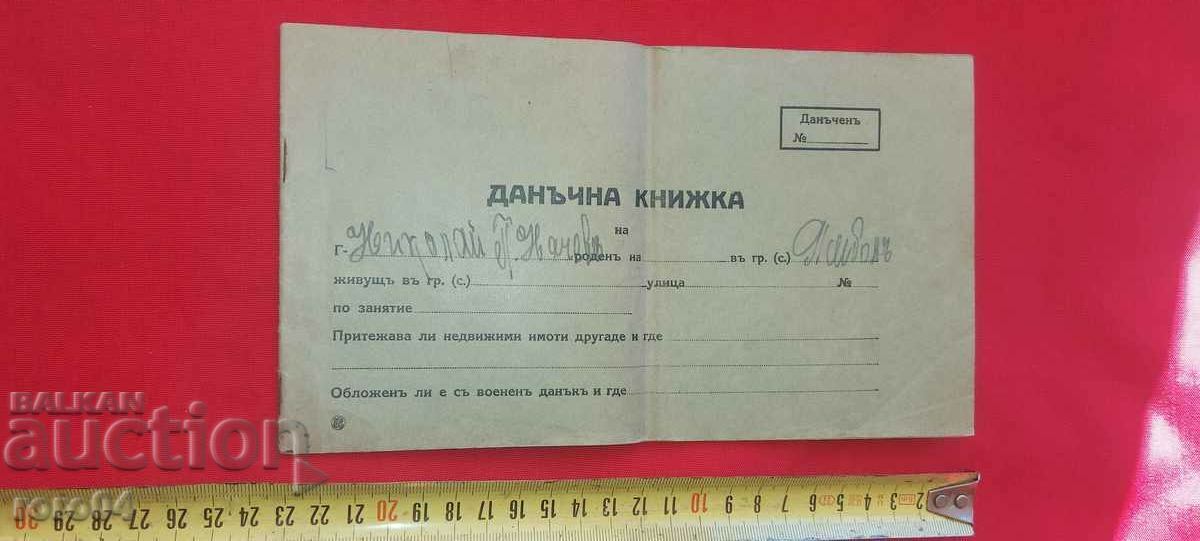 Данъченъ
№
ДАНЪЧНА КНИЖКА
на
Г-Николай П. Начевъ роденъ на въ гр. (с.) Ямболъ
живущъ въ гр. (с.) улица №
по занятие
Притежава ли недвижими имоти другаде и где
Обложенъ ли е съ воененъ данъкъ и где
BALKAN
auction
roro94
30 29 28 27 26 25 24 23 22 21 20 19 18 17 16 15 14 13 12 11 10 9 8 7 6 5 4 3 2